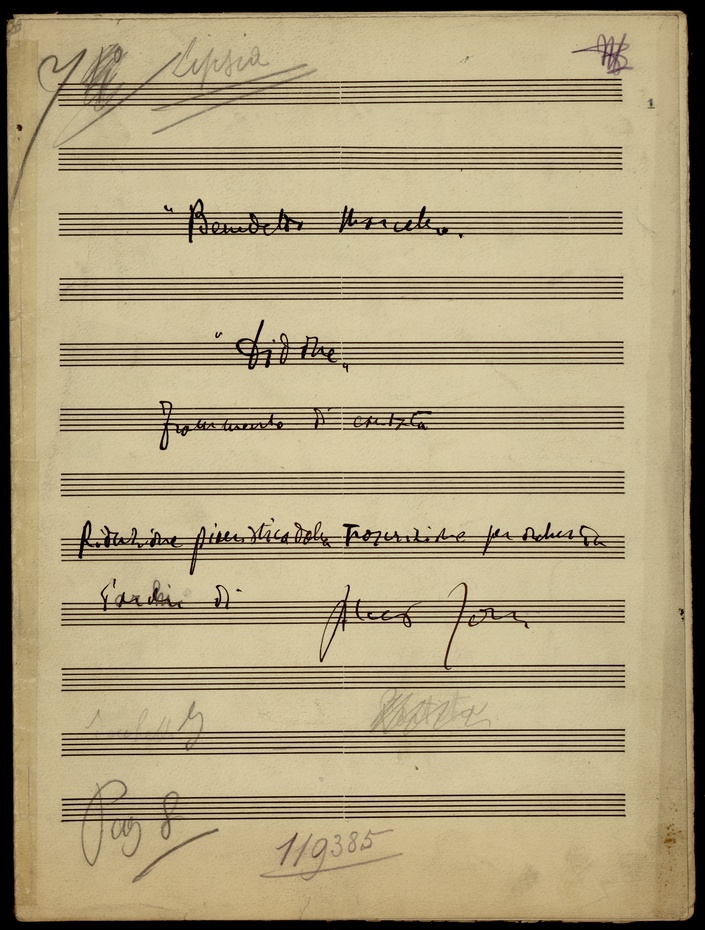 Lipsia
1
"Benedetto Marcello.
"Didone"
Frammento di cantata
Riduzione pianistica della Trascrizione per orchestra
d'archi di
Pag 8
119385